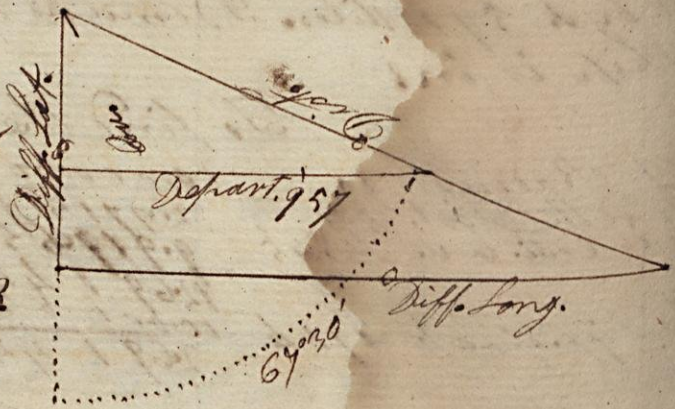 Diff. Lat.
Dist.
Depart. 957
Diff. Long.
67°30'